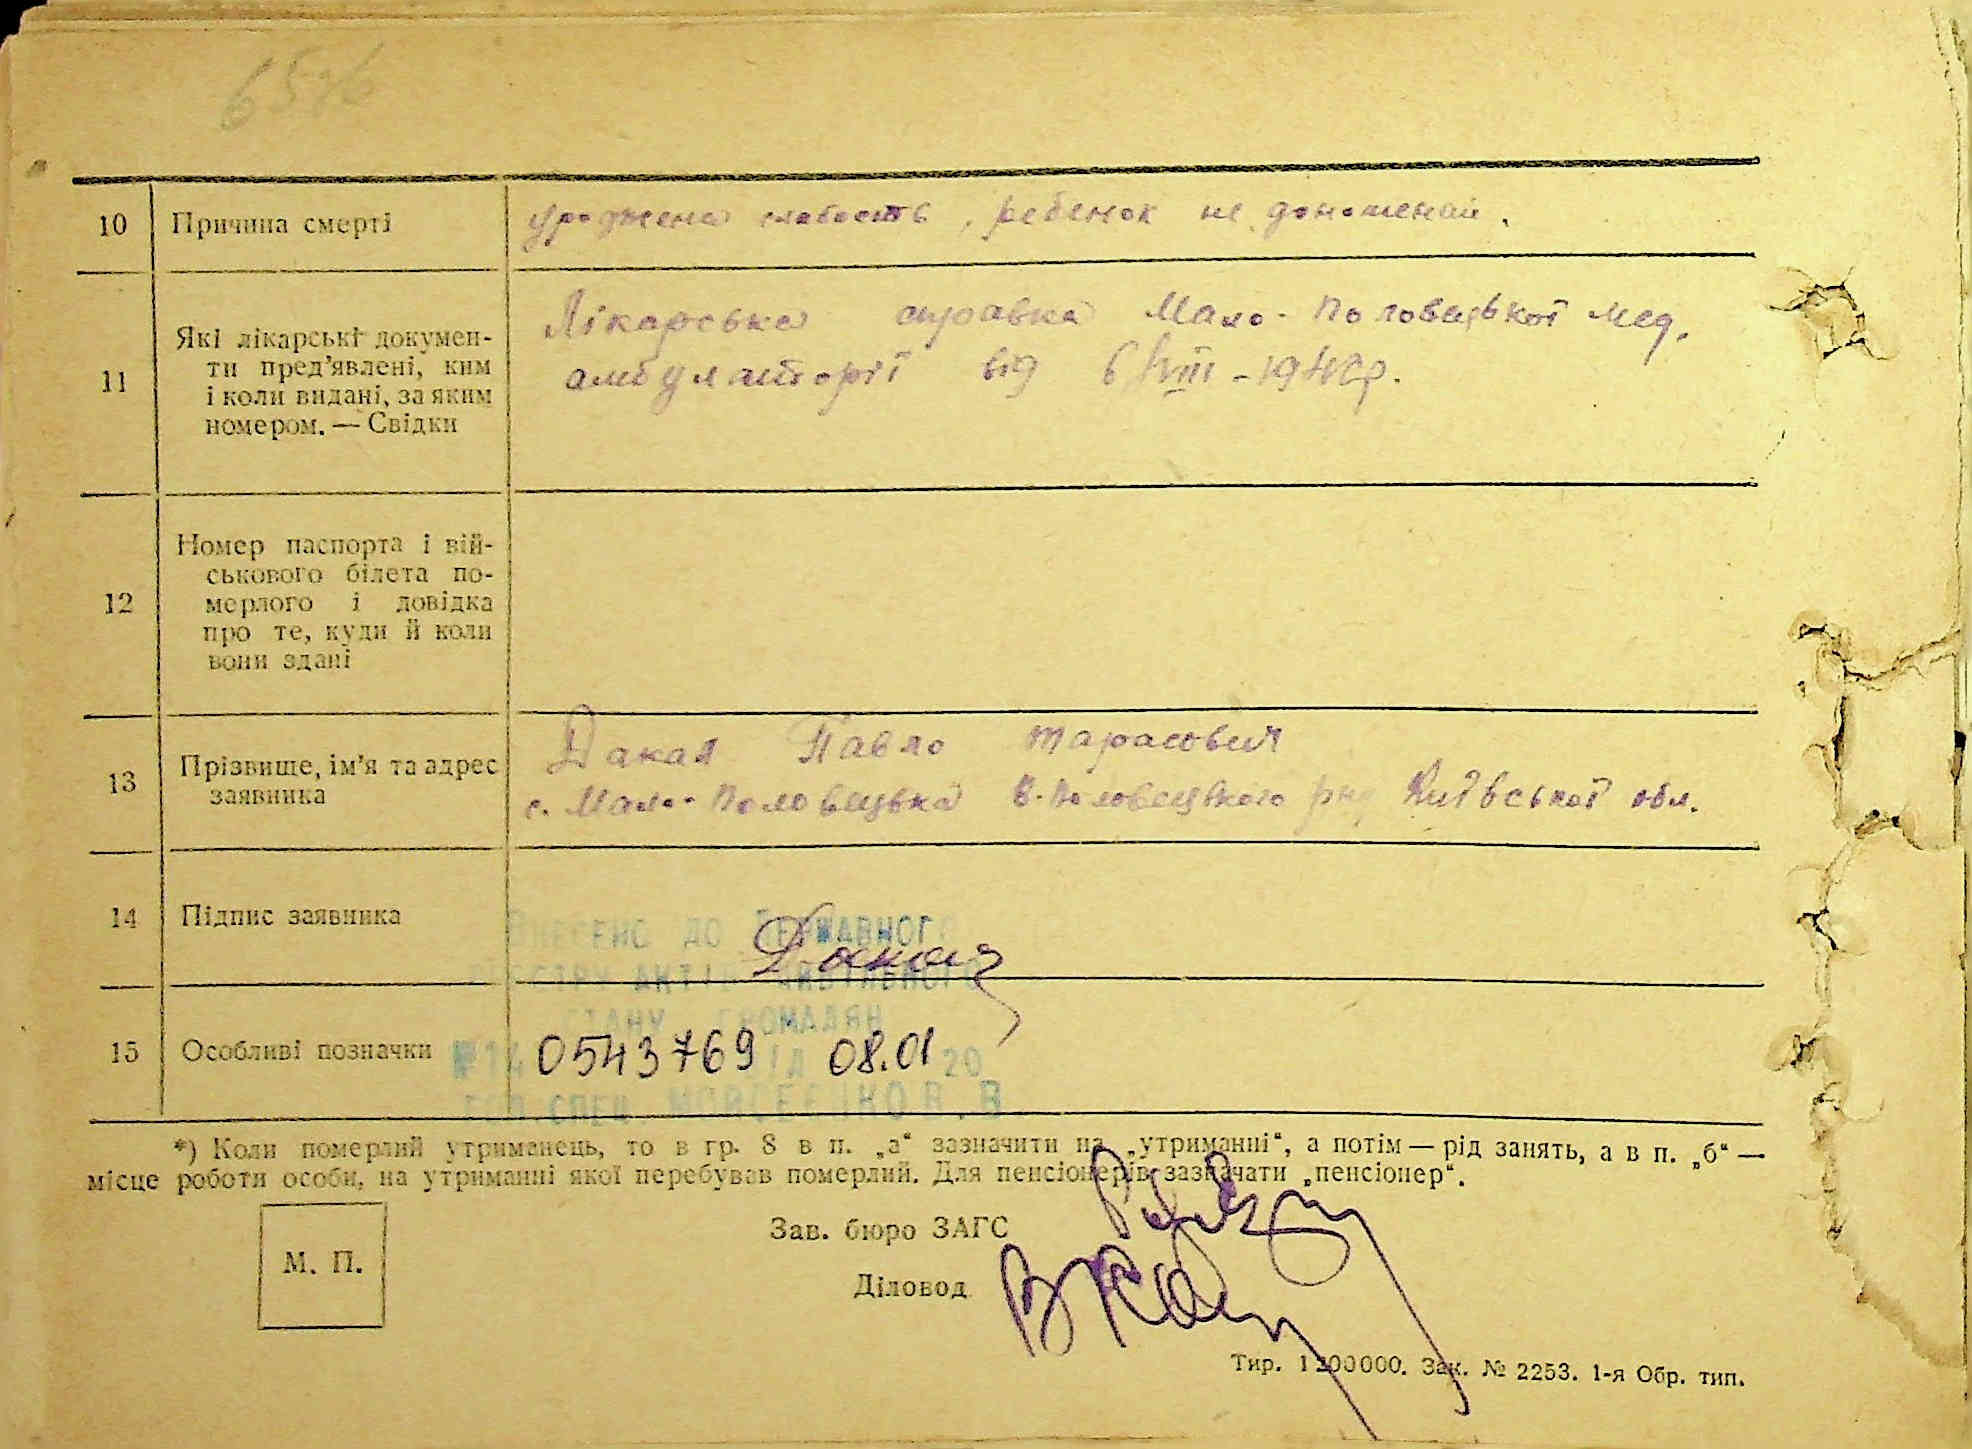 10 Причина смерті
уроджена слабость, ребенок не доношений.
11 Які лікарські документи пред'явлені, ким і коли видані, за яким номером. — Свідки
Лікарська справка Мало-Половецької мед.
амбулаторії від 6/VIII-1940р.
12 Номер паспорта і вій-
ськового білета по-
мерлого і довідка
про те, куди й коли
вони здані
13 Прізвище, ім'я та адрес
заявника
Дакал Павло Тарасович
с. Мало-Половецька В-Половецького р-ну Київської обл.
14 Підпис заявника
ВНЕСЕНО ДО ДЕРЖАВНОГО
РЕЄСТРУ АКТІВ ЦИВІЛЬНОГО
СТАНУ ГРОМАДЯН
15 Особливі позначки
0543769 08.01 20
*) Коли померлий утриманець, то в гр. 8 в п. „а“ зазначити на „утриманні“, а потім — рід занять, а в п. „б“ —
місце роботи особи, на утриманні якої перебував померлий. Для пенсіонерів зазначати „пенсіонер“.
М. П.
Зав. бюро ЗАГС
Діловод
Тир. 1200000. Зак. № 2253. 1-я Обр. тип.